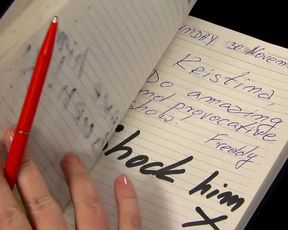 SUNDAY 30 November
Kristina,
Do amazing
and provocative
shots.
Freddy
Shock him
X